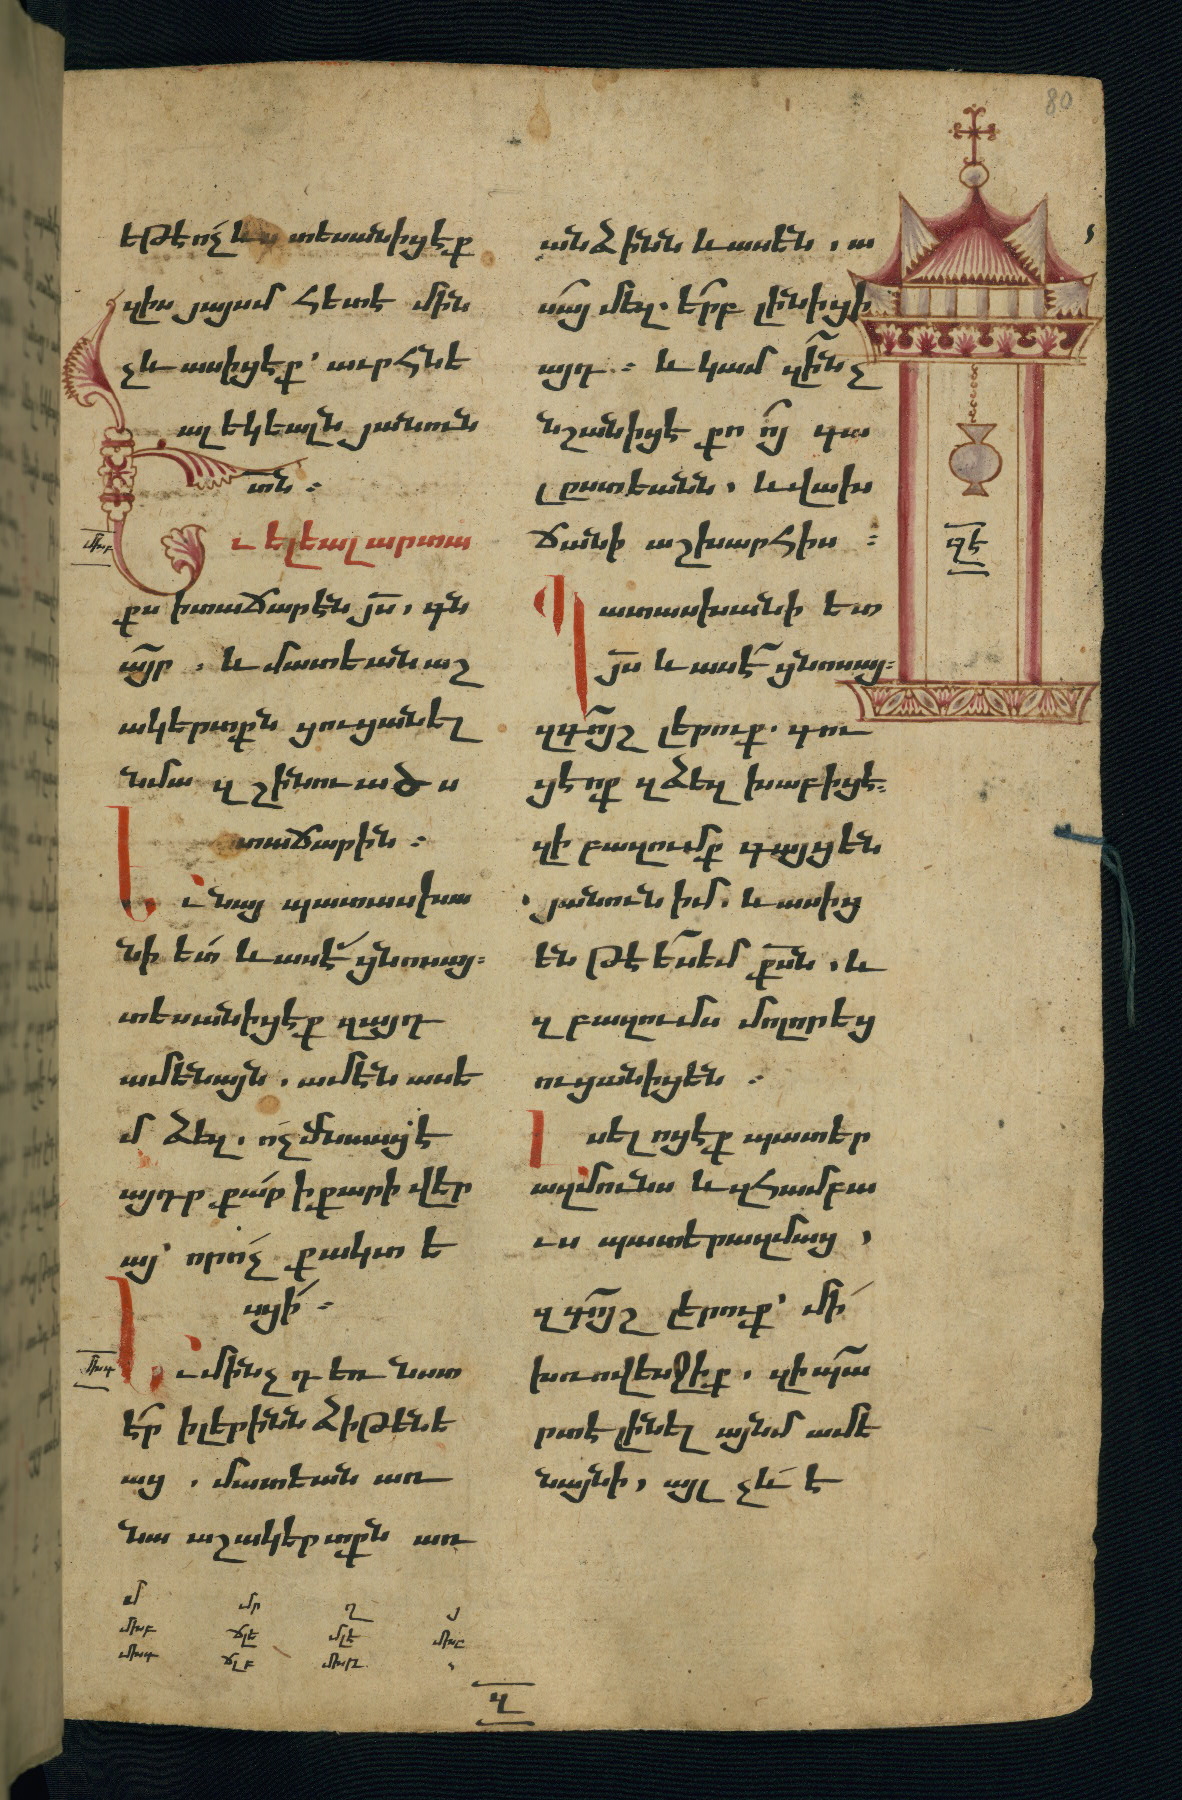 80
եթէ ոչ ևս տեսանիցէք
զիս յայսմ հետէ մին
չև ասիցէք՝ աւրհնե
ալ եկեալն յանուն
տն ։
ւ ելեալ արտա
քս ի տաճարէն յս, գն
այր . և մատեան աշ
ակերտքն ցուցանել
նմա զ շինուածս
տաճարին ։
Ե ւ նայ պատասխա
նի ետ և ասէ ցնոսայ ։
տեսանիցէք զայդ
ամենայն . ամէն ասե
մ ձեզ . ոչ մնասցէ
այդր քար ի քարի վեր
այ՝ որ ոչ քակտե
սցի ։
Ե ւ մինչդեռ նստ
էր ի լերինն ձիթենե
աց . մատեան առ
նա աշակերտքն առ
անձինն և ասեն , ա
սա մեզ . երբ լինիցի
այդ ։ և կամ զինչ
նշանիցէ քո յ գա
լըստեանն , և վախ
ճանի աշխարհիս ։
Պ ատասխանի ետ
յս և ասէ ցնոսայ ։
զգոյշ լերուք . գու
ցե ոք զձեզ խաբիցէ ։
զի բազումք գայցեն
յանուն իմ . և ասից
են թէ ես եմ քսն , և
զ բազումս մոլորեց
ուցանիցեն ։
Լ սել ոցէք պատեր
ազմունս և զհամբա
ւս պատերազմաց ,
զգոյշ լերուք՝ մի
խռովեսջիք . զի պա
րտէ լինել այնմ ամե
նայնի , այլ չև է
զէ
մխբ
մխգ
մ մր ղ յ
մխբ ճլե մլէ մխը
մխգ ճլբ մխռ
զ